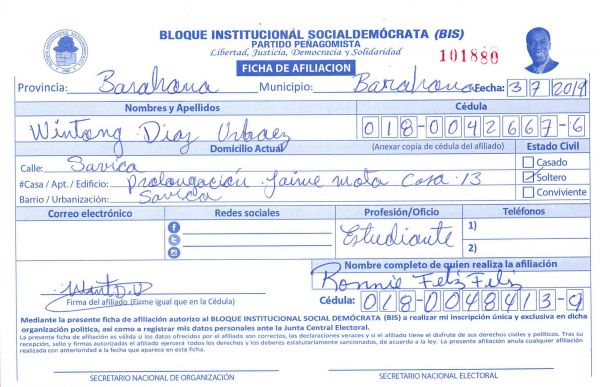 BLOQUE INSTITUCIONAL SOCIALDEMÓCRATA (BIS)
PARTIDO PEÑAGOMISTA
Libertad, Justicia, Democracia y Solidaridad
101880
FICHA DE AFILIACION
Provincia: Barahona Municipio: Barahona Fecha: 3 7 2019
Nombres y Apellidos Cédula
Wintong Diaz Urbaez 018-0042667-6
Domicilio Actual (Anexar copia de cédula del afiliado) Estado Civil
Calle: Savica Casado
#Casa / Apt. / Edificio: Prolongación Jaime mota Casa 13 Soltero
Barrio / Urbanización: Savica Conviviente
Correo electrónico Redes sociales Profesión/Oficio Teléfonos
Estudiante 1)
2)
Nombre completo de quien realiza la afiliación
Ronnie Feliz Feliz
Firma del afiliado (Firme igual que en la Cédula) Cédula: 018-0048413-9
Mediante la presente ficha de afiliación autorizo al BLOQUE INSTITUCIONAL SOCIAL DEMÓCRATA (BIS) a realizar mi inscripción única y exclusiva en dicha
organización política, así como a registrar mis datos personales ante la Junta Central Electoral.
La presente ficha de afiliación es válida si los datos ofrecidos por el afiliado son correctos, las declaraciones veraces y si el afiliado tiene el disfrute de sus derechos civiles y políticos. Tras su
recepción, sello y firmas autorizados el afiliado ejercerá todos los derechos y los deberes estatutariamente sancionados, de acuerdo a la ley. La presente afiliación anula cualquier afiliación
realizada con anterioridad a la fecha que aparece en esta ficha.
SECRETARIO NACIONAL DE ORGANIZACIÓN SECRETARIO NACIONAL ELECTORAL